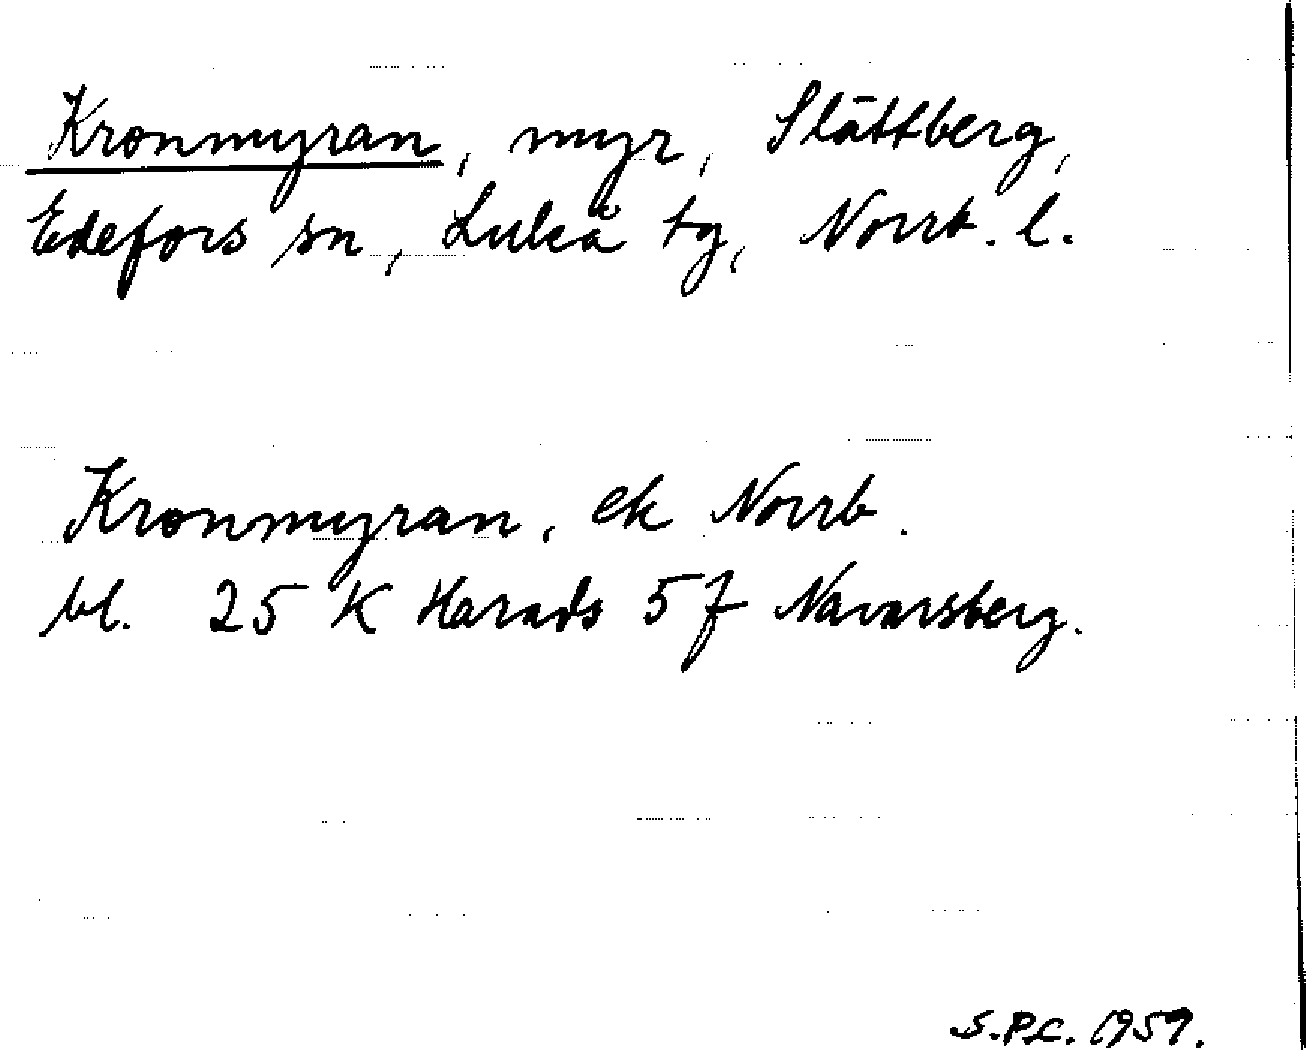 Kronmyran, myr, Slättberg,
Edefors sn, Luleå tg, Norrb. l.
Kronmyran, ek Norrb.
bl. 25 K Harads 5 f Navarsberg.
S.P.L. 1959.